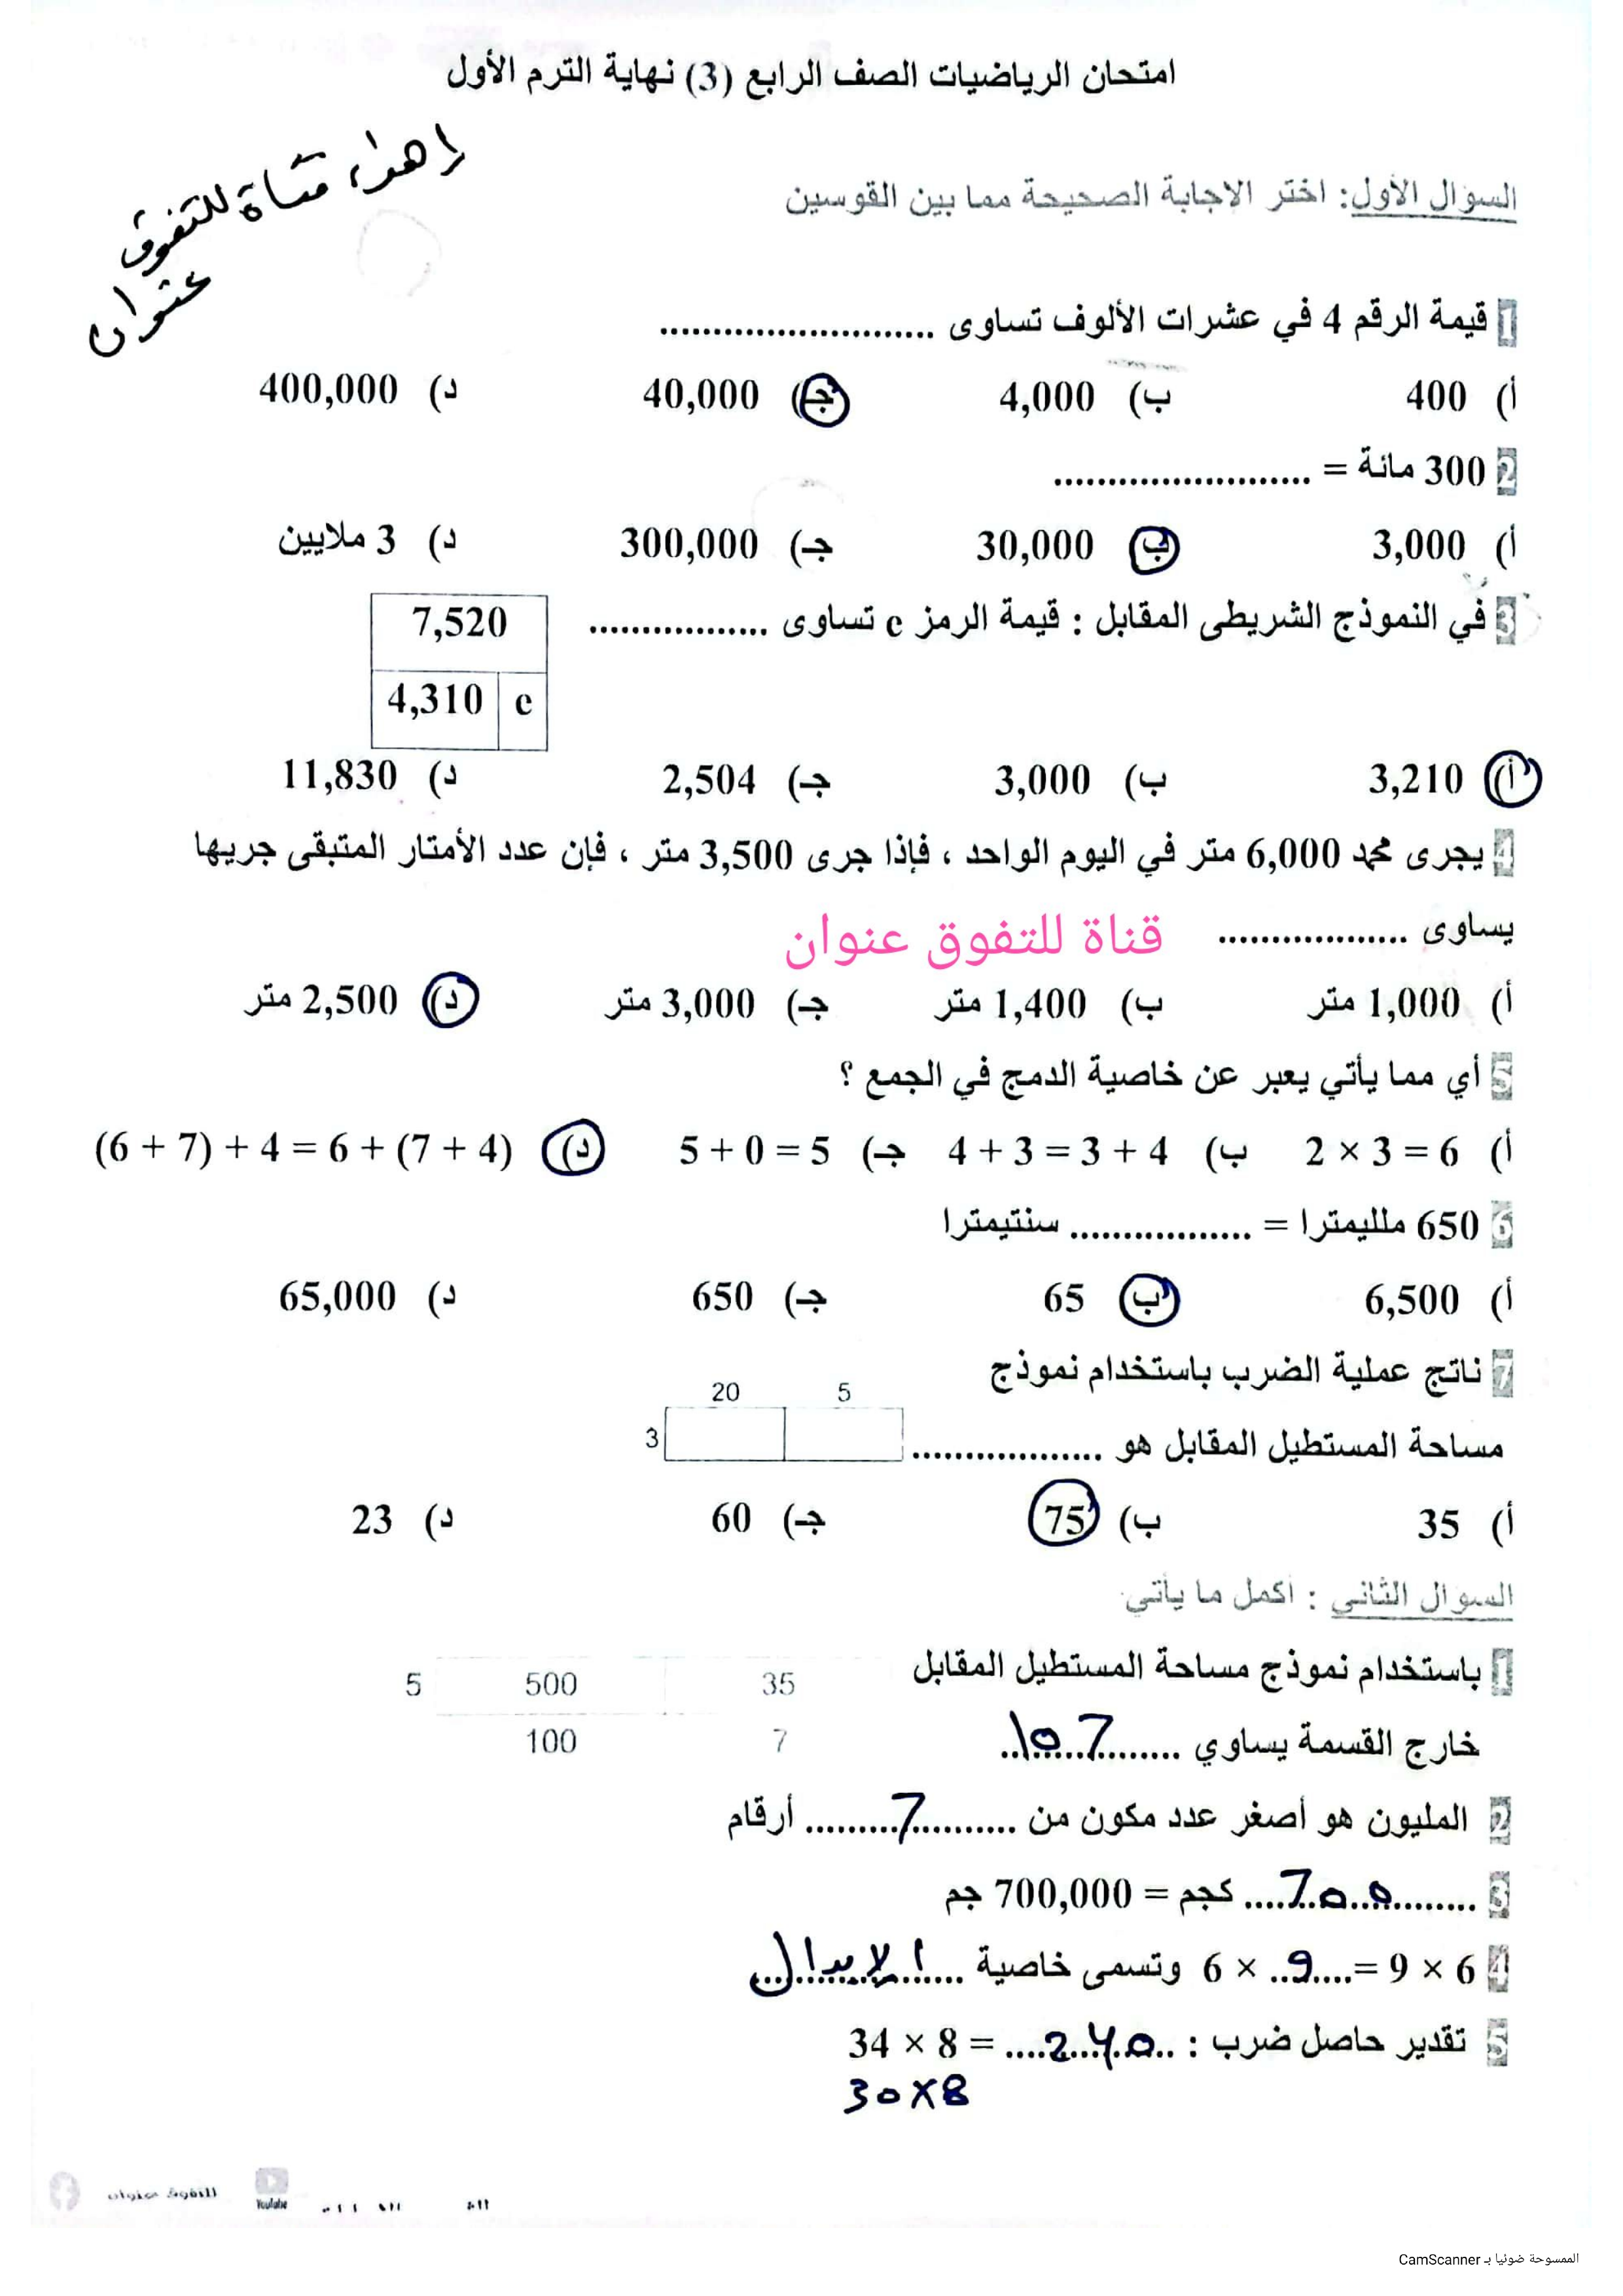 امتحان الرياضيات الصف الرابع (3) نهاية الترم الأول
اهداء قناة للتفوق
عنوان
السؤال الأول: اختر الاجابة الصحيحة مما بين القوسين
1 قيمة الرقم 4 في عشرات الألوف تساوى ..........................
أ) 400 ب) 4,000 جـ) 40,000 د) 400,000
2 300 مائة = ........................
أ) 3,000 ب) 30,000 جـ) 300,000 د) 3 ملايين
3 في النموذج الشريطى المقابل : قيمة الرمز c تساوى .................
7,520
4,310 c
أ) 3,210 ب) 3,000 جـ) 2,504 د) 11,830
4 يجرى محمد 6,000 متر في اليوم الواحد ، فإذا جرى 3,500 متر ، فإن عدد الأمتار المتبقى جريها
يساوى ..................
قناة للتفوق عنوان
أ) 1,000 متر ب) 1,400 متر جـ) 3,000 متر د) 2,500 متر
5 أي مما يأتي يعبر عن خاصية الدمج في الجمع ؟
أ) 2 × 3 = 6 ب) 4 + 3 = 3 + 4 جـ) 5 + 0 = 5 د) (6 + 7) + 4 = 6 + (7 + 4)
6 650 ملليمترا = ................. سنتيمترا
أ) 6,500 ب) 65 جـ) 650 د) 65,000
7 ناتج عملية الضرب باستخدام نموذج
20 5
3
مساحة المستطيل المقابل هو ..................
أ) 35 ب) 75 جـ) 60 د) 23
السؤال الثاني : أكمل ما يأتي
1 باستخدام نموذج مساحة المستطيل المقابل
5 500 35
100 7
خارج القسمة يساوي ........107..
2 المليون هو أصغر عدد مكون من ..........7......... أرقام
3 ........700.... كجم = 700,000 جم
4 6 × 9 =....9.. × 6 وتسمى خاصية ....الإبدال....
5 تقدير حاصل ضرب : 34 × 8 = ....240..
30×8
للتفوق عنوان
YouTube
الممسوحة ضوئيا بـ CamScanner